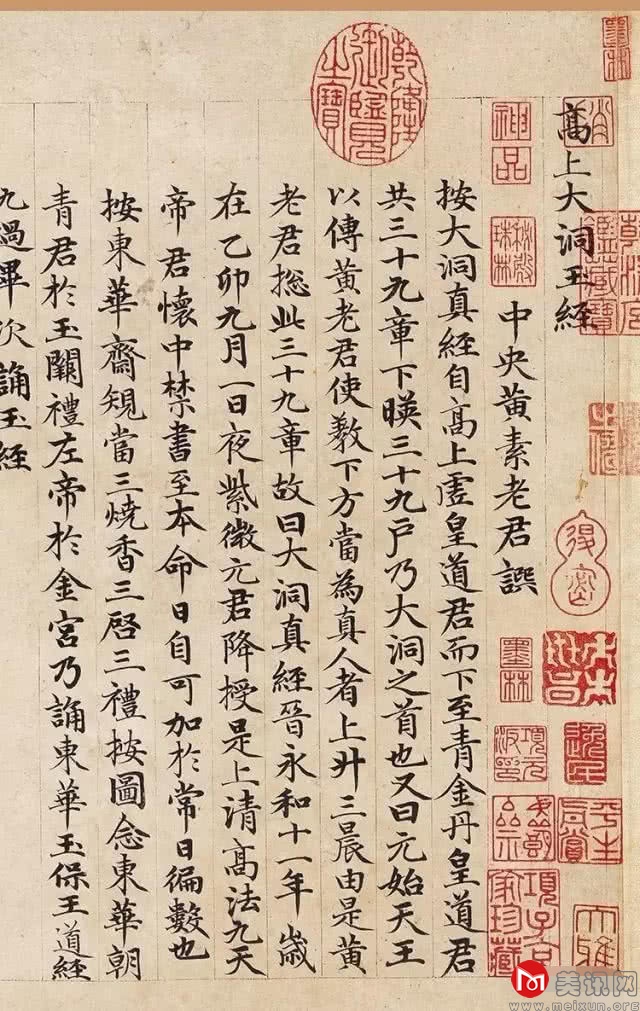 髙上大洞玉經
中央黃素老君譔
按大洞真經自髙上虛皇道君而下至青金丹皇道君
共三十九章下暎三十九戶乃大洞之首也又曰元始天王
以傳黃老君使教下方當為真人者上升三晨由是黃
老君揔此三十九章故曰大洞真經晉永和十一年歲
在乙卯九月一日夜紫微元君降授是上清髙法九天
帝君懷中禁書至本命日自可加於常日徧數也
按東華齋規當三燒香三啓三禮按圖念東華朝
青君於玉闕禮左帝於金宮乃誦東華玉保王道經
九過畢次誦玉經
乾隆御覽之寶
神品
秘殿珠林
乾清宮鑒藏寶
墨林
子孫世昌
項元汴印
平生真賞
項子京家珍藏
美讯网
www.meixun.org